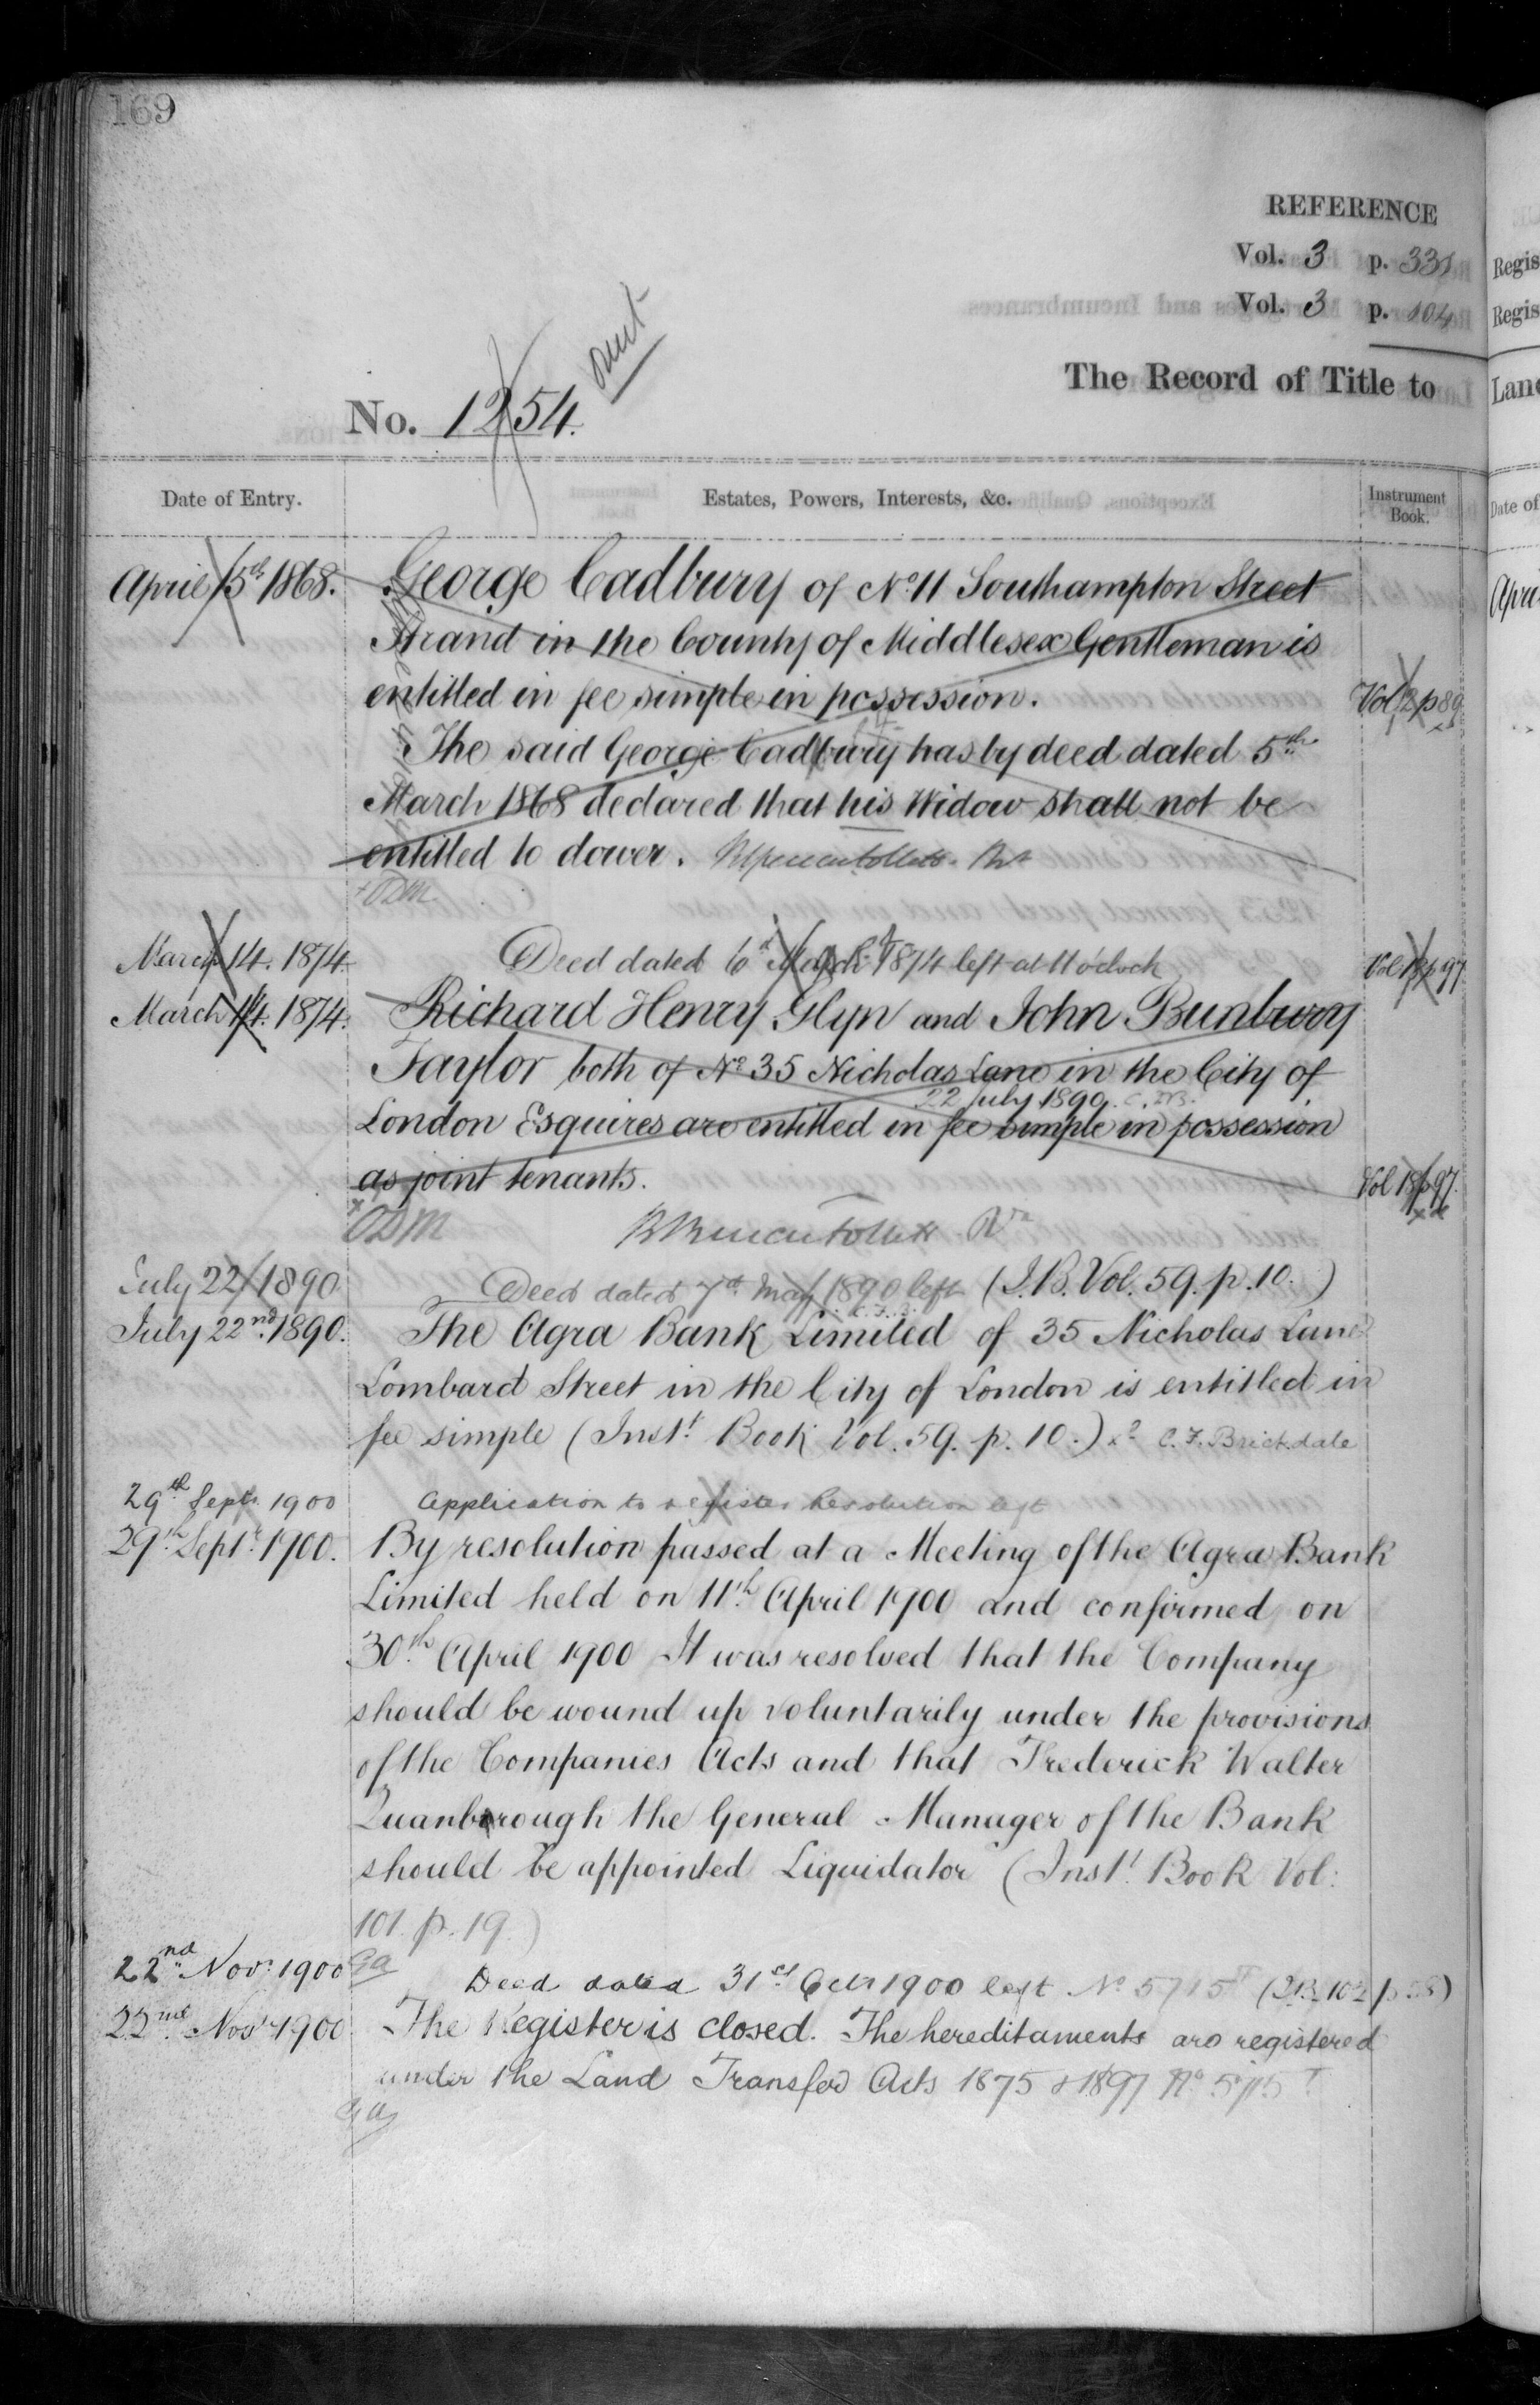 169
REFERENCE
Vol. 3 p. 331
Vol. 3 p. 104
The Record of Title to
No. 1254.
Date of Entry.
Estates, Powers, Interests, &c.
Instrument Book.
April 15th 1868. George Cadbury of No 11 Southampton Street
Strand in the County of Middlesex Gentleman is
entitled in fee simple in possession. Vol 2 p 89
The said George Cadbury has by deed dated 5th
March 1868 declared that his Widow shall not be
entitled to dower.
ODM
March 14. 1874. Deed dated 6th March 1874 left at 11 o'clock Vol 18 p 97
March 14. 1874. Richard Henry Glyn and John Bunbury
Taylor both of No 35 Nicholas Lane in the City of
22 July 1890.
London Esquires are entitled in fee simple in possession
as joint tenants. Vol 18 p 97.
ODM
July 22 1890 Deed dated 7th May 1890 left (I.B. Vol. 59. p. 10.)
July 22nd 1890. The Agra Bank Limited of 35 Nicholas Lane
Lombard Street in the City of London is entitled in
fee simple (Inst. Book Vol. 59. p. 10.) C. F. Brickdale
29th Septr. 1900 Application to register Resolution left
29th Septr. 1900. By resolution passed at a Meeting of the Agra Bank
Limited held on 11th April 1900 and confirmed on
30th April 1900 It was resolved that the Company
should be wound up voluntarily under the provisions
of the Companies Acts and that Frederick Walter
Quanborough the General Manager of the Bank
should be appointed Liquidator (Inst. Book Vol:
101. p. 19.)
22nd Novr. 1900 Deed dated 31st Octr 1900 left No 5715
22nd Novr 1900 The Register is closed. The hereditaments are registered
under the Land Transfer Acts 1875 & 1897 No 5715
Regis
Regis
Land
Date of
Apri